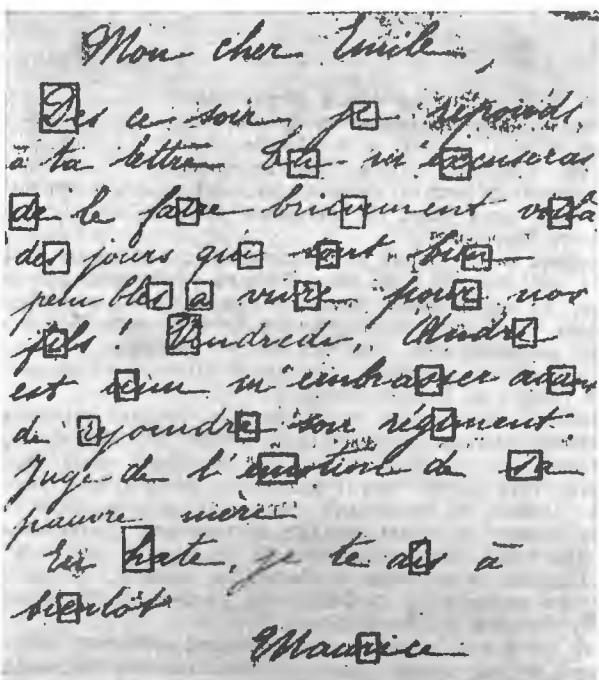 Mon cher Emile,
Des ce soir, je reponds
à ta lettre Tu m'excuseras
de le faire brievement voilà
des jours qui sont bien
penibles à vivre pour nos
fils! Vendredi, André
est venu m'embrasser avant
de rejoindre son régiment
Juge de l'émotion de sa
pauvre mère
En hate, je te dis à
bientôt
Maurice